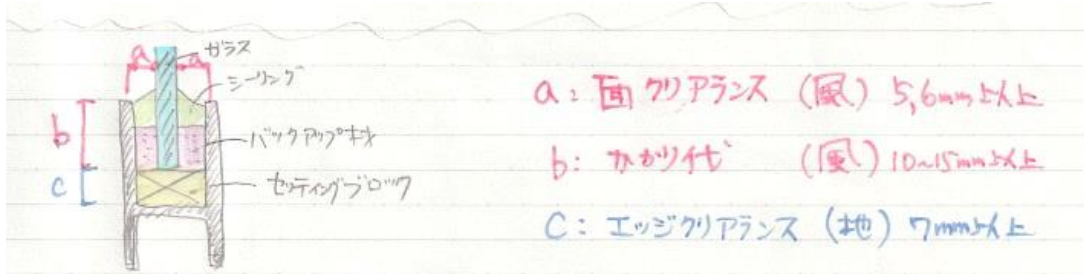 ガラス
a a
シーリング
b
バックアップ材
c
セッティングブロック
a: 面クリアランス (風) 5,6mm以上
b: かかり代 (風) 10~15mm以上
C: エッジクリアランス (地) 7mm以上